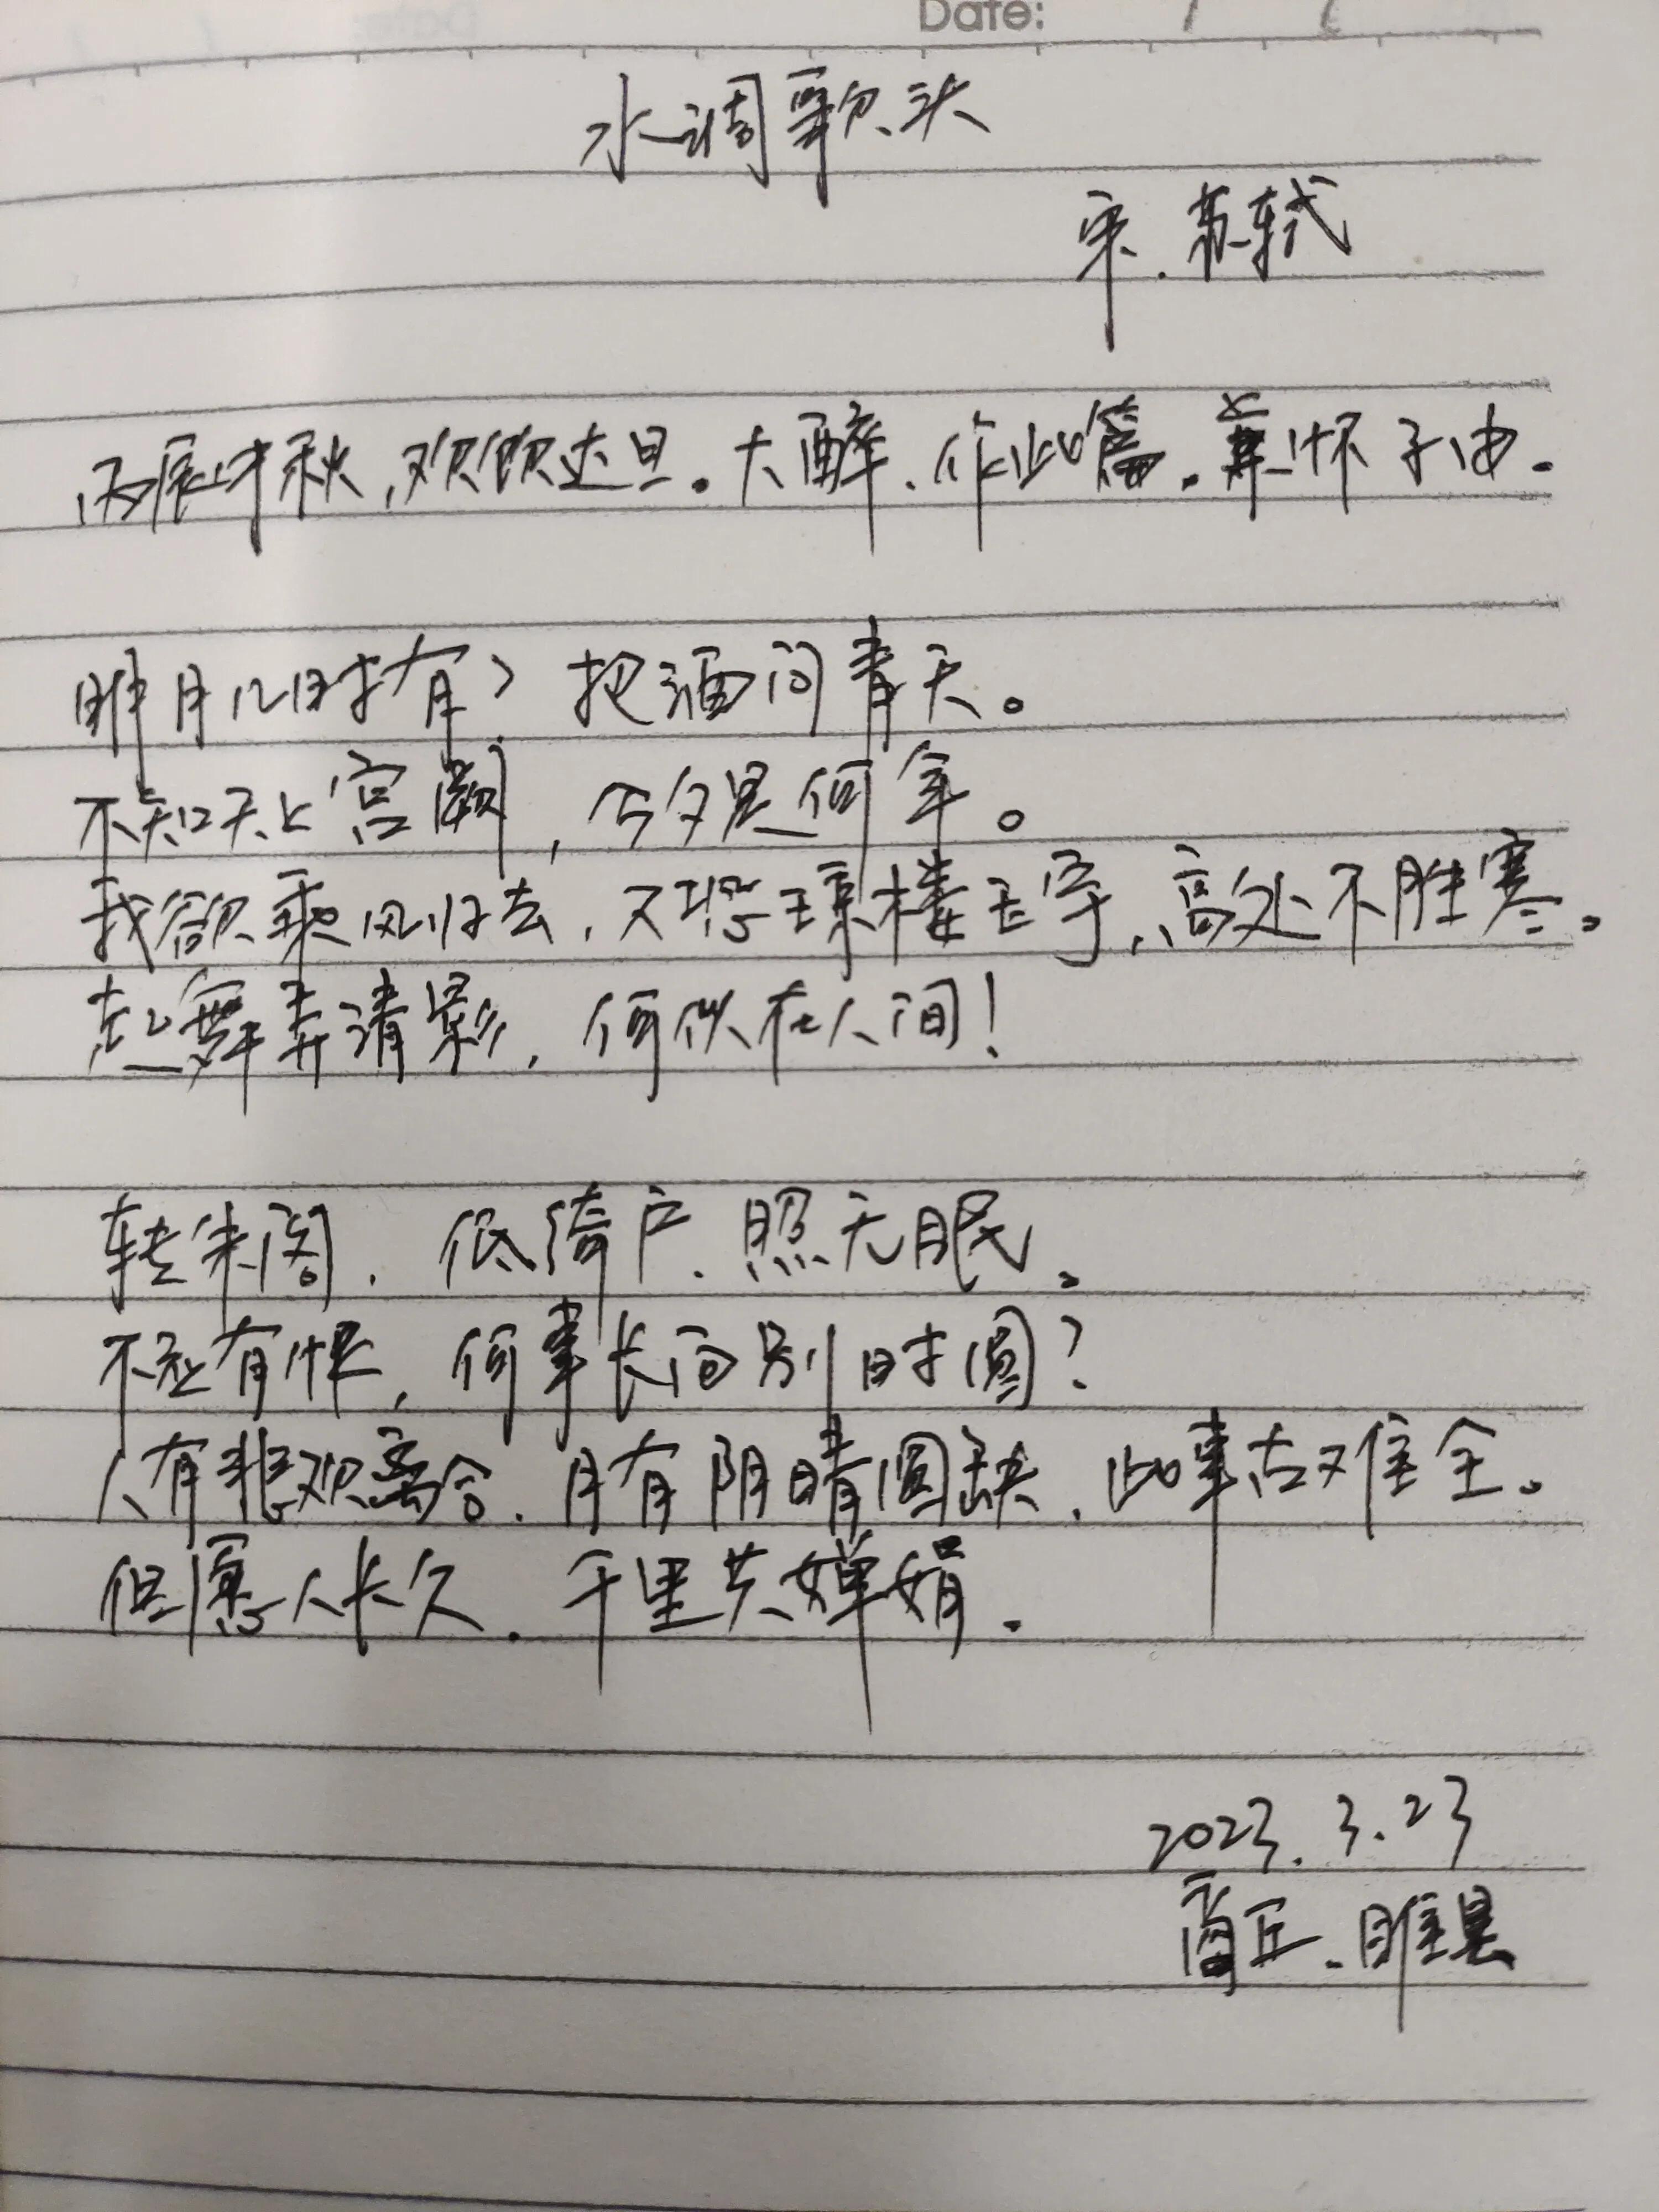 Date: / /
水调歌头
宋.苏轼
丙辰中秋,欢饮达旦。大醉,作此篇。兼怀子由。
明月几时有?把酒问青天。
不知天上宫阙,今夕是何年。
我欲乘风归去,又恐琼楼玉宇,高处不胜寒。
起舞弄清影,何似在人间!
转朱阁,低绮户,照无眠。
不应有恨,何事长向别时圆?
人有悲欢离合,月有阴晴圆缺,此事古难全。
但愿人长久,千里共婵娟.
2023.3.23